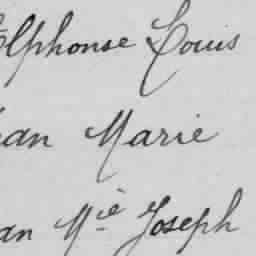 Alphonse Louis
ean Marie
an Mie Joseph